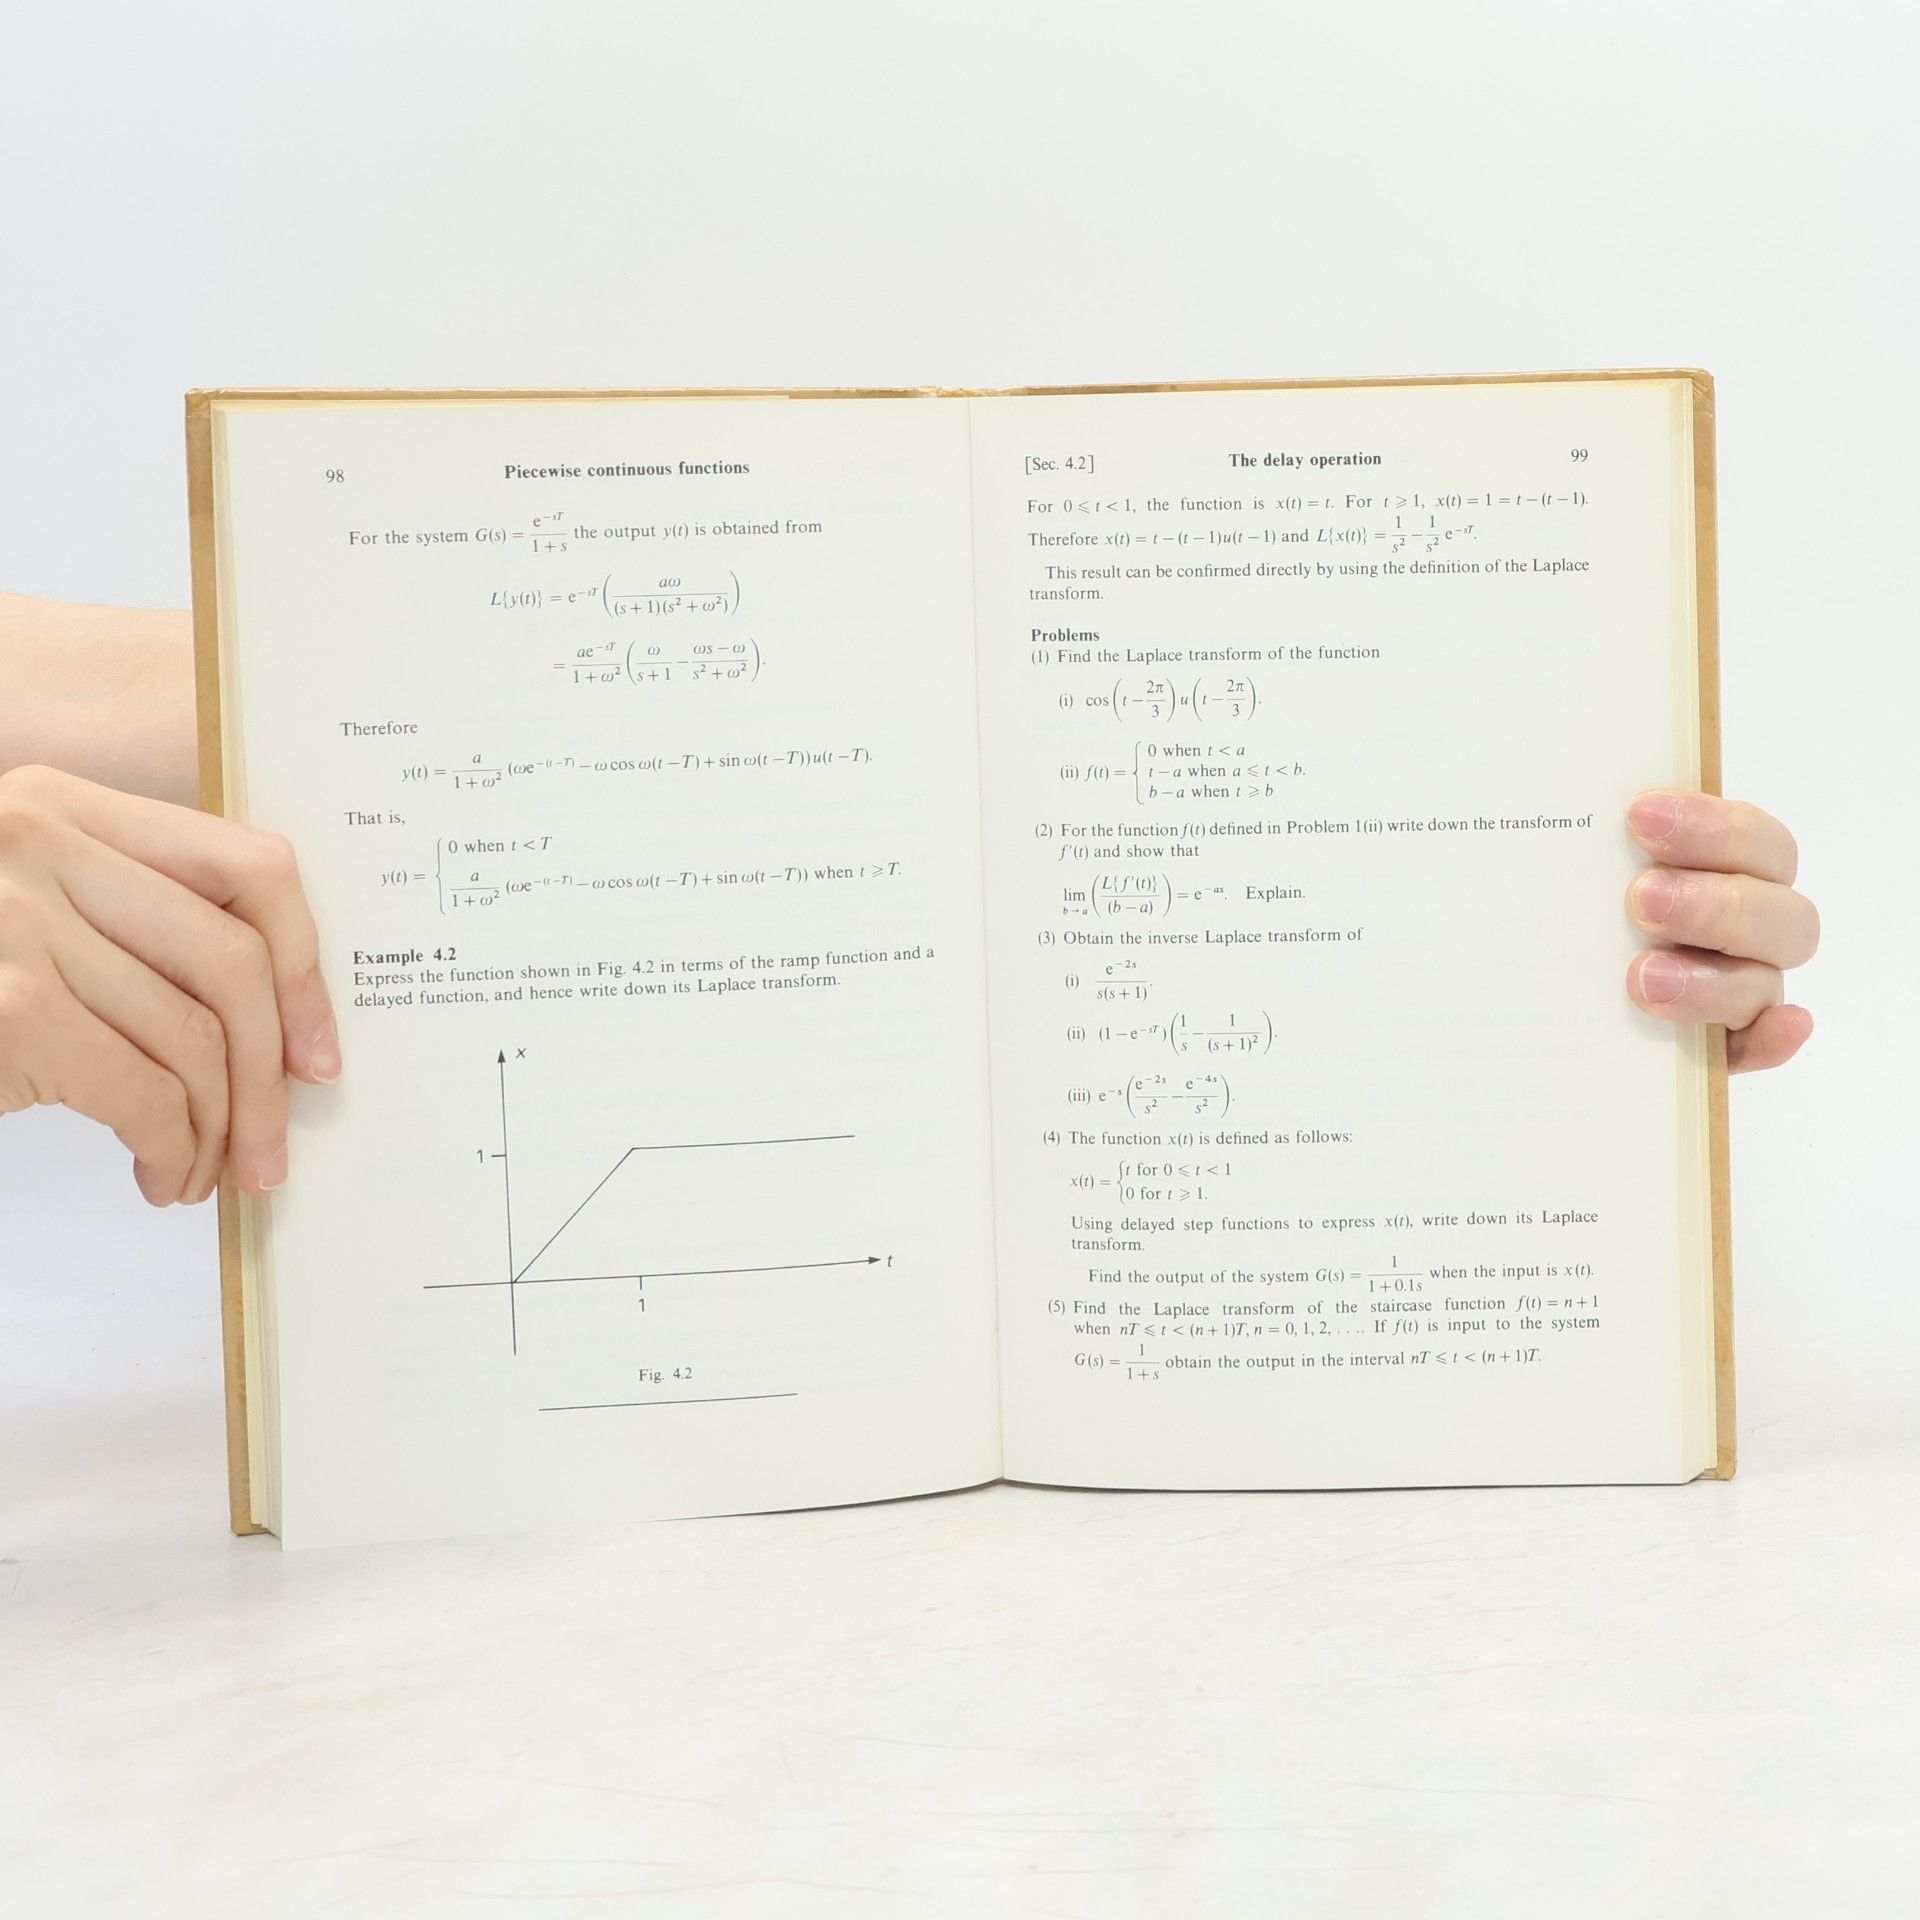 98 Piecewise continuous functions
For the system G(s) = e^{-sT}/(1+s) the output y(t) is obtained from
L{y(t)} = e^{-sT} ( aω / ((s+1)(s² + ω²)) )
= ae^{-sT}/(1+ω²) ( ω/(s+1) − (ωs − ω)/(s² + ω²) ).
Therefore
y(t) = a/(1+ω²) (ωe^{-(t-T)} − ω cos ω(t − T) + sin ω(t − T))u(t − T).
That is,
y(t) = { 0 when t < T
a/(1+ω²) (ωe^{-(t-T)} − ω cos ω(t − T) + sin ω(t − T)) when t ⩾ T.
Example 4.2
Express the function shown in Fig. 4.2 in terms of the ramp function and a
delayed function, and hence write down its Laplace transform.
x
1
t
1
Fig. 4.2
[Sec. 4.2] The delay operation 99
For 0 ⩽ t < 1, the function is x(t) = t. For t ⩾ 1, x(t) = 1 = t − (t − 1).
Therefore x(t) = t − (t − 1)u(t − 1) and L{x(t)} = 1/s² − 1/s² e^{-sT}.
This result can be confirmed directly by using the definition of the Laplace
transform.
Problems
(1) Find the Laplace transform of the function
(i) cos(t − 2π/3) u(t − 2π/3).
(ii) f(t) = { 0 when t < a
t − a when a ⩽ t < b.
b − a when t ⩾ b
(2) For the function f(t) defined in Problem 1(ii) write down the transform of
f′(t) and show that
lim b→a ( L{f′(t)} / (b − a) ) = e^{-as}. Explain.
(3) Obtain the inverse Laplace transform of
(i) e^{-2s} / s(s + 1).
(ii) (1 − e^{-sT}) ( 1/s − 1/(s + 1)² ).
(iii) e^{-s} ( e^{-2s}/s² − e^{-4s}/s² ).
(4) The function x(t) is defined as follows:
x(t) = { t for 0 ⩽ t < 1
0 for t ⩾ 1.
Using delayed step functions to express x(t), write down its Laplace
transform.
Find the output of the system G(s) = 1/(1 + 0.1s) when the input is x(t).
(5) Find the Laplace transform of the staircase function f(t) = n + 1
when nT ⩽ t < (n + 1)T, n = 0, 1, 2, . . . . If f(t) is input to the system
G(s) = 1/(1 + s) obtain the output in the interval nT ⩽ t < (n + 1)T.